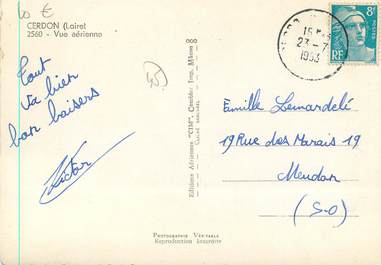 10 €
CERDON (Loiret
2560 - Vue aérienne
Tout
va bien
bon baisers
Victor
Editions Aériennes "CIM", Combier Imp. Mâcon
CLICHÉ
15 H
23 - 7
1953
8F
RF
Famille Lemardelé
19 Rue des Marais 19
Meudon
(S-O)
PHOTOGRAPHIE VÉRITABLE
Reproduction Interdite